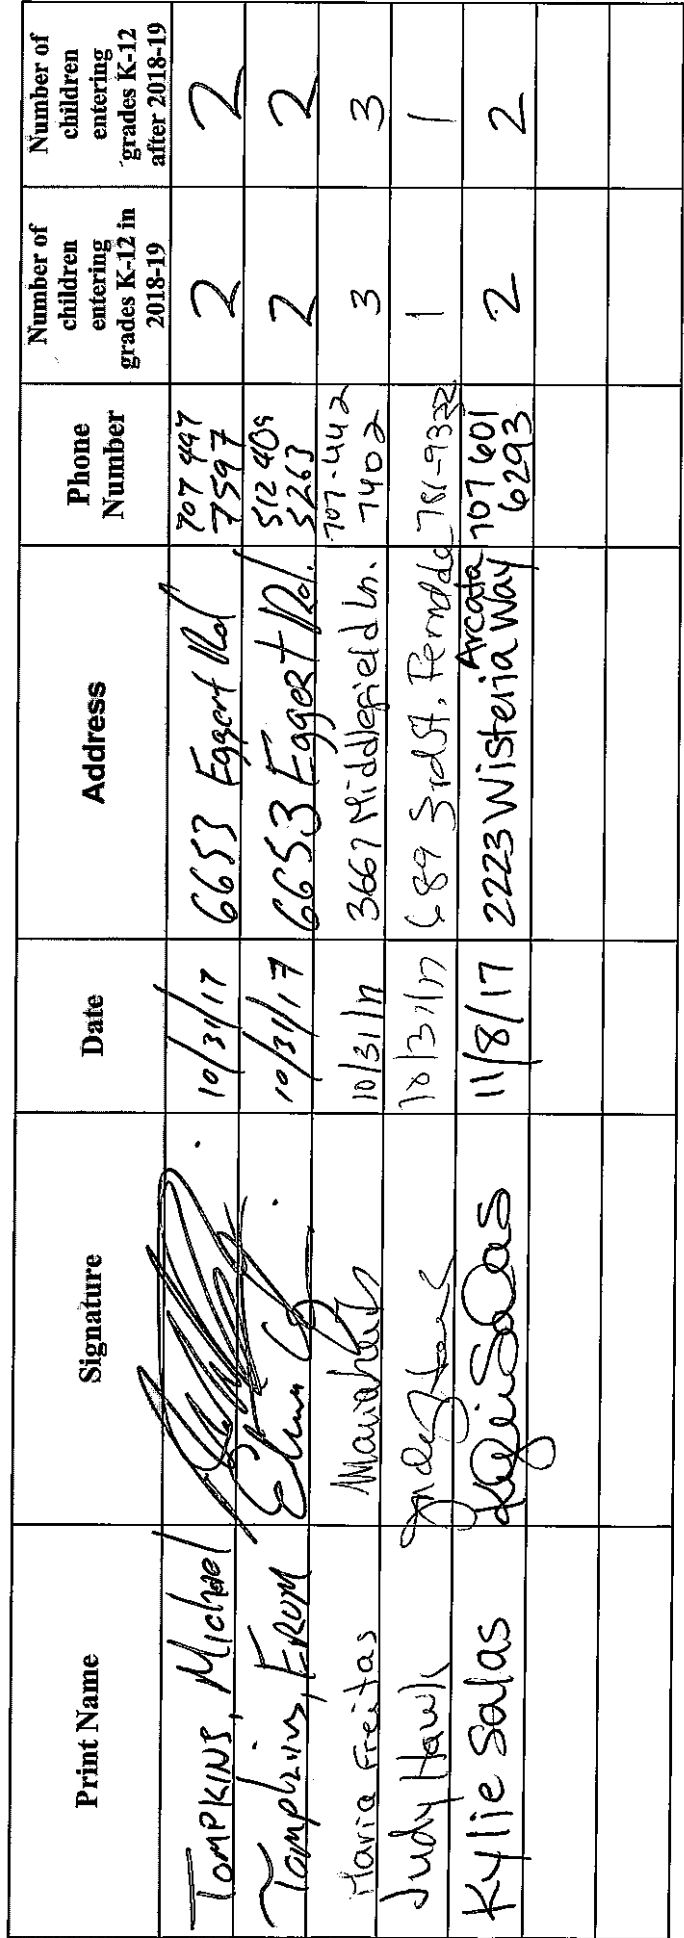 Print Name
Signature
Date
Address
Phone
Number
Number of
children
entering
grades K-12 in
2018-19
Number of
children
entering
grades K-12
after 2018-19
Tompkins, Michael
10/31/17
6653 Eggert Rd
707 497
7597
2
2
Tompkins,
10/31/17
6653 Eggert Rd.
512 409
3263
2
2
Maria Freitas
10/31/17
3667 Middlefield Ln.
707-442
7402
3
3
Judy Hawk
10/31/17
689 3rd St. Ferndale
1
1
Kylie Salas
Kylie Salas
11/8/17
2223 Wisteria Way
Arcata
707 601
6293
2
2